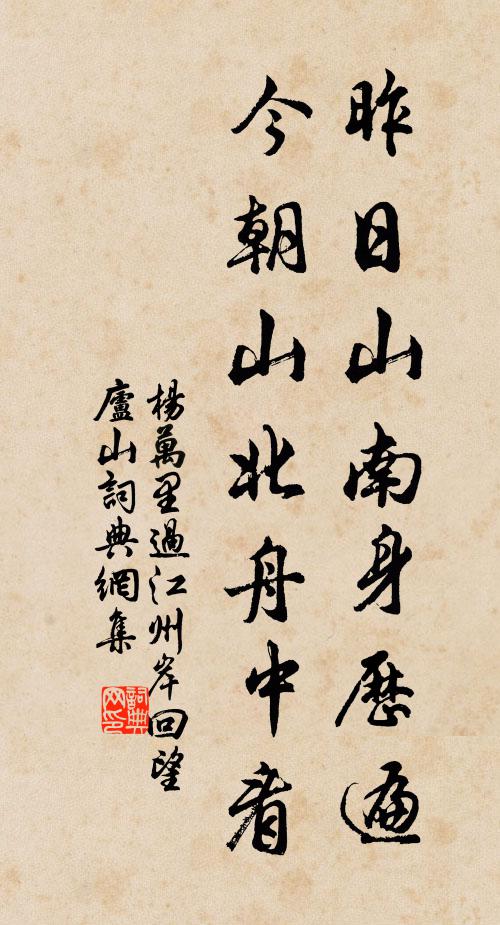 昨日山南身歷遍
今朝山北舟中看
楊萬里過江州岸回望
廬山詞典網集
詞典
网印